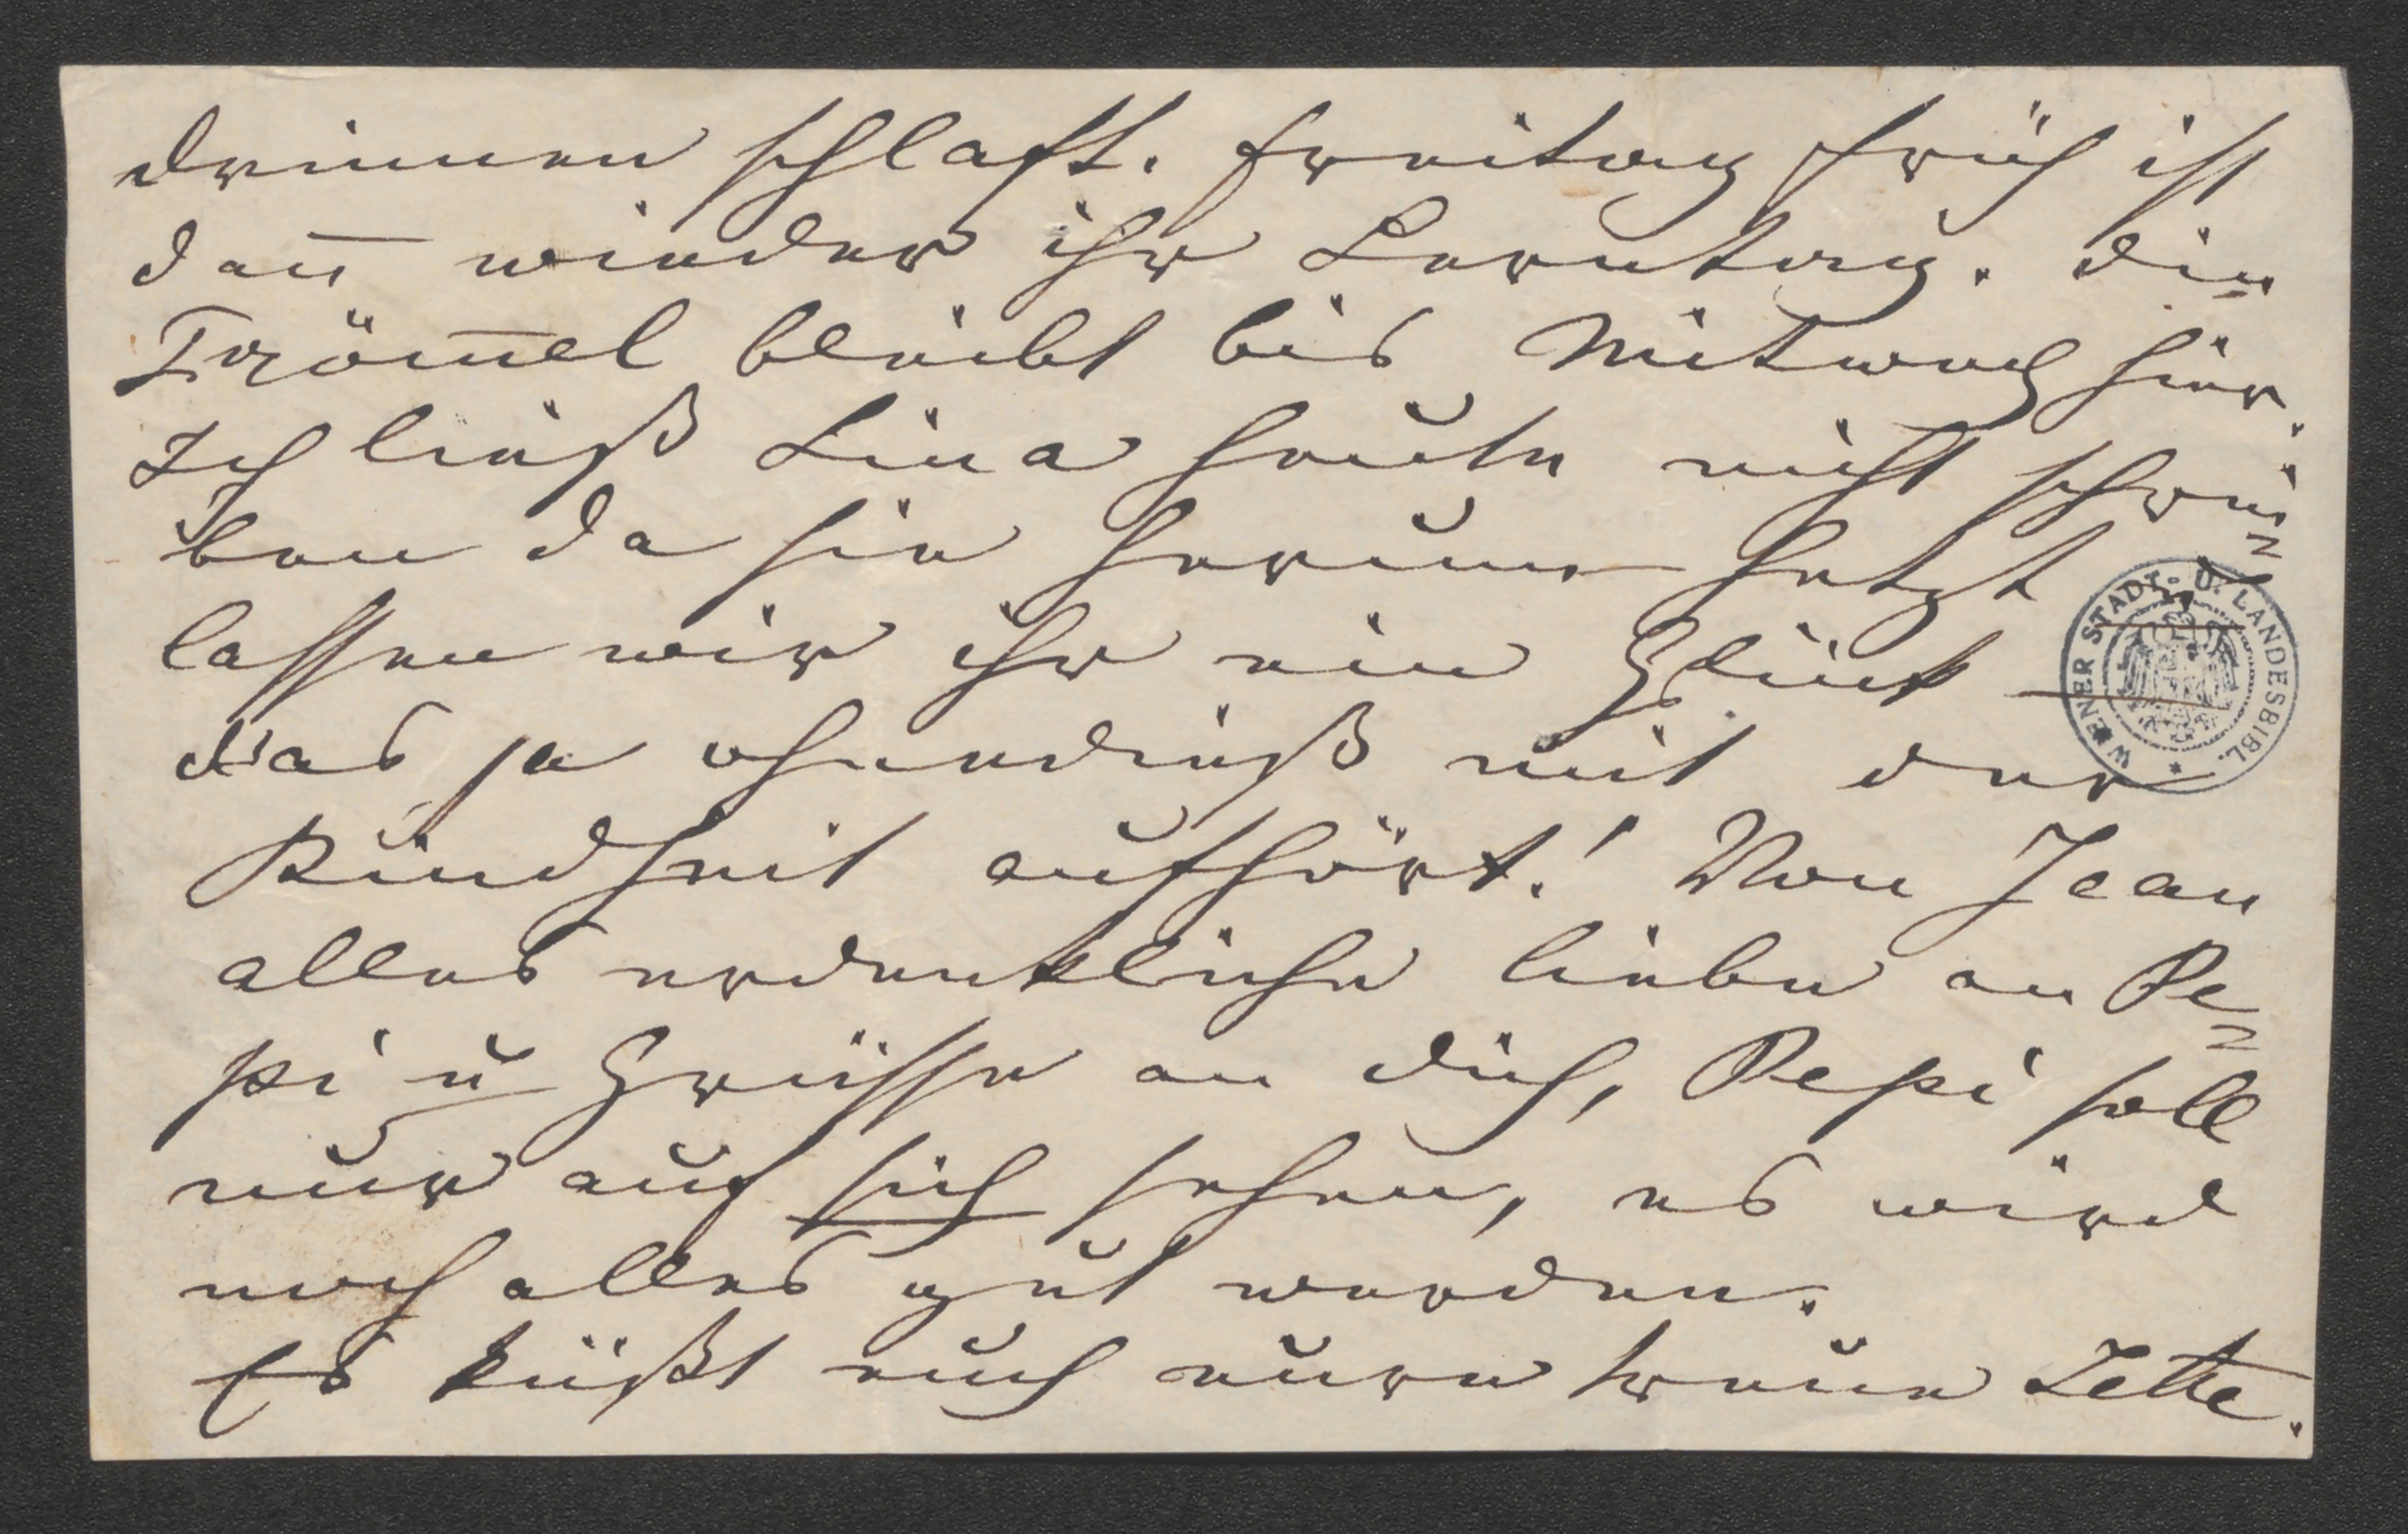 drinnen schlaft. Freitag früh ist
dan̄ wieder ihr Lerntag. Die
Tröm̄el bleibt bis Mitwoch hier.
Ich ließ Lina heute nicht schrei=
ben da sie herum hetzt –
lassen wir ihr ein Glück –
das ja ohnedieß mit der
Kindheit aufhört! Von Jean
alles erdenkliche liebe an Pe=
pi u Grüsse an dich, Pepi soll
nur auf sich sehen, es wird
noch alles gut werden.
Es küßt euch eure treue Jette.
WIENER STADT- U. LANDESBIBL.